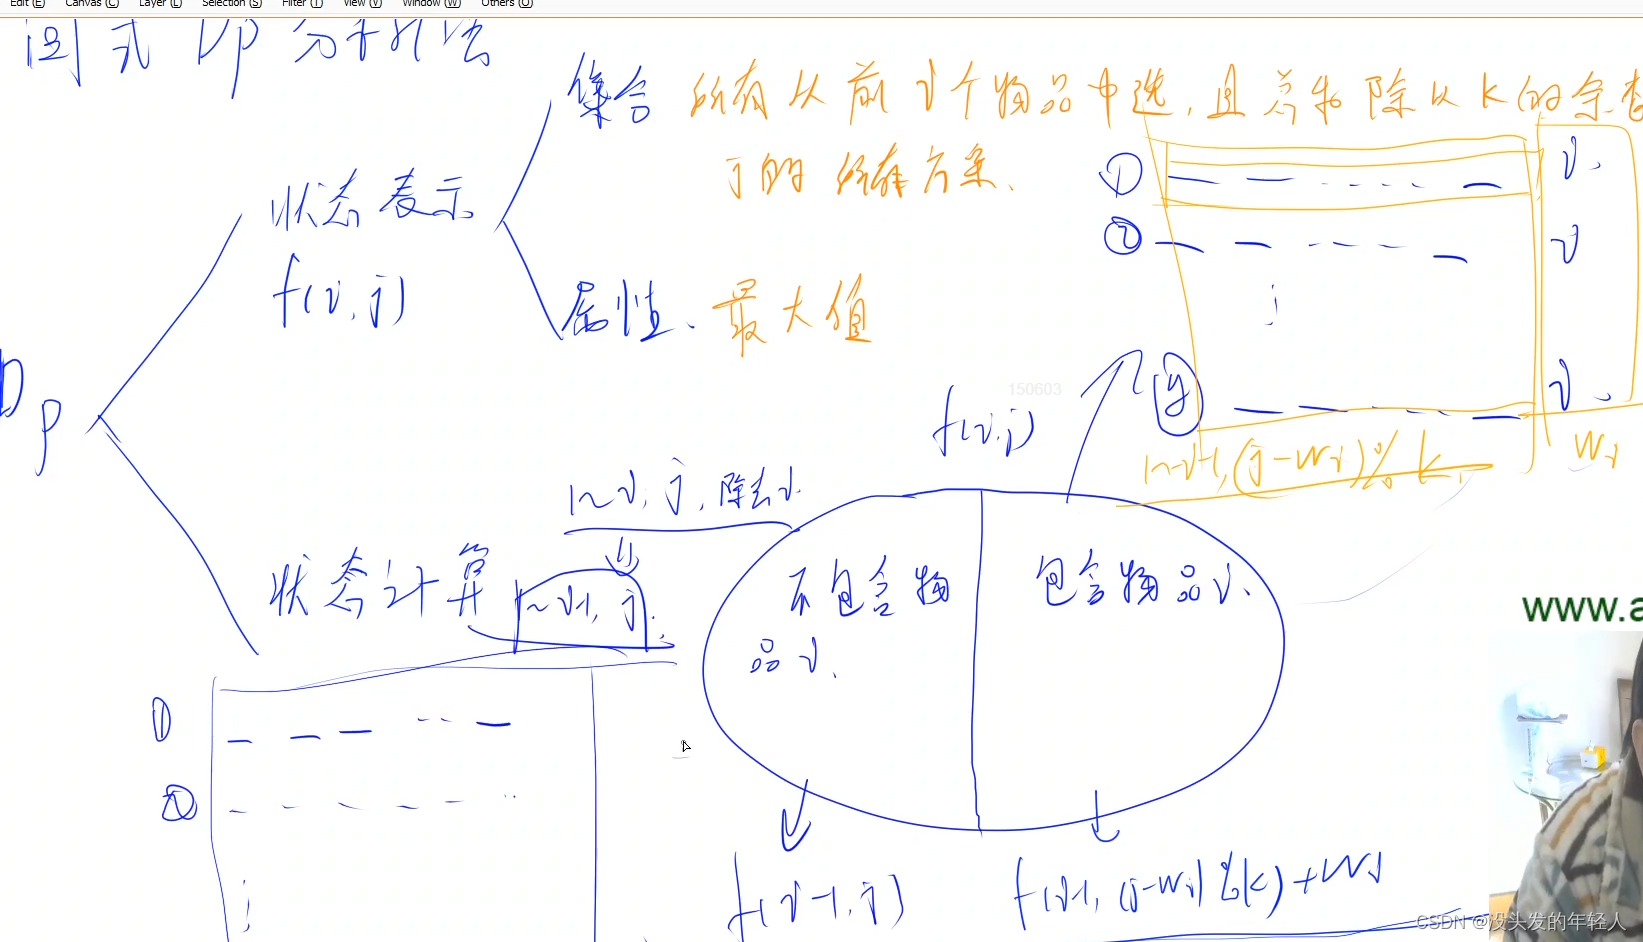 Edit (E) Canvas (C) Layer (L) Selection (S) Filter (T) View (V) Window (W) Others (O)
闫式 Dp 分析法
集合 所有从前i个物品中选,且总和除以K的余数
j的所有方案.
① i.
② i
状态表示
f(i, j)
属性. 最大值
Dp
150603
f(i,j)
y i.
1~i-1, (j-wi)% k, wi
1~i, j, 除去i
状态计算
1~i-1, j.
不包含物
品i.
包含物品i.
www.a
①
②
f(i-1, j)
f(i-1, (j-wi)%k)+wi
CSDN @没头发的年轻人